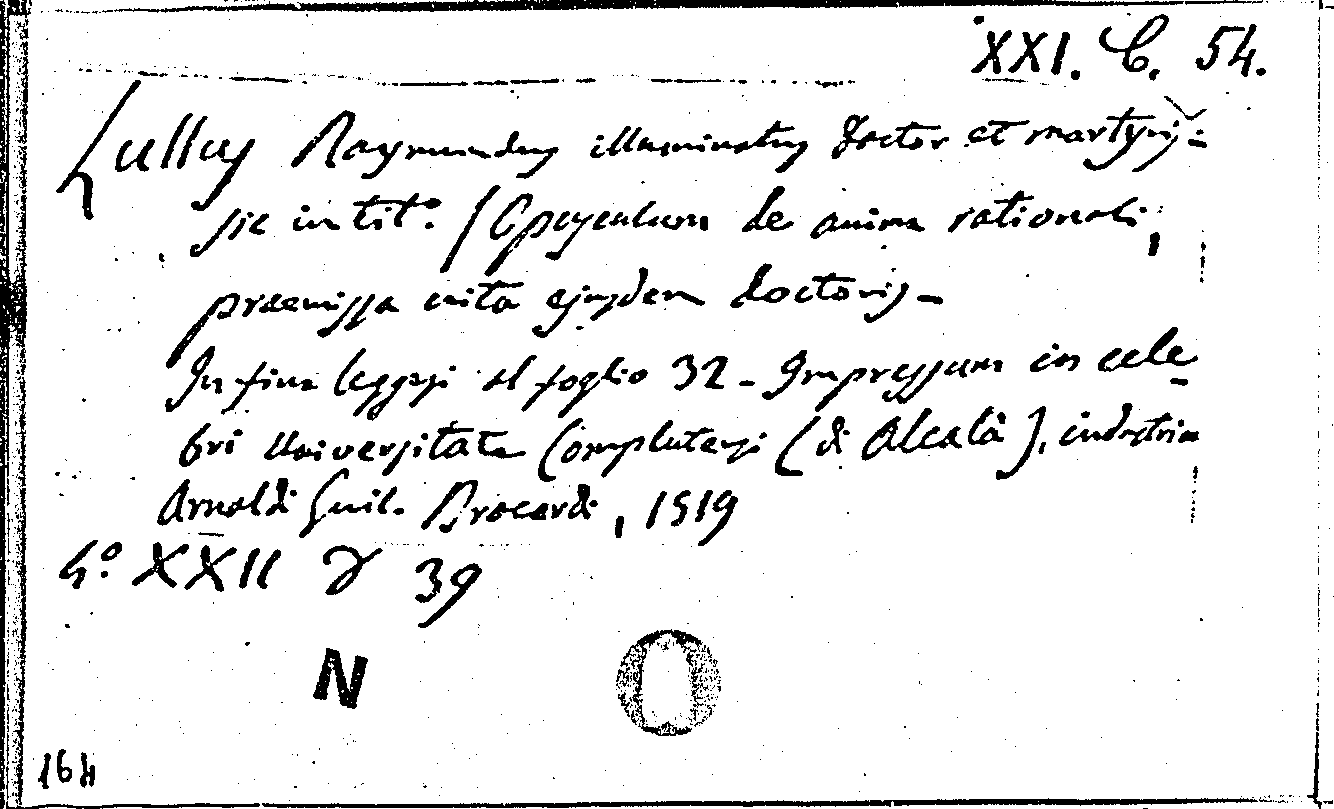 XXI. C. 54.
Lullus Raymundus illuminatus doctor et martyris:
sic in tit.° / Opusculum de anima rationali,
praemissa vita ejusdem doctoris –
In fine leggesi al foglio 32 – Impressum in cele-
bri Universitate Complutensi (di Alcalà), industria
Arnoldi Guil. Brocardi, 1519
4.° XXII 39
N
164